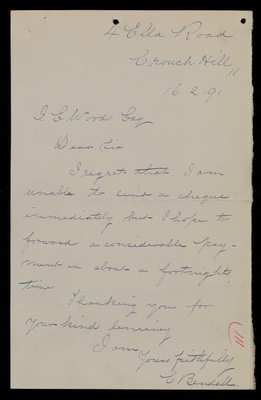 4 Ella Road
Crouch Hill
N
16.2.91
J. C. Woods Esq
Dear Sir
I regret that I am
unable to send a cheque
immediately but I hope to
forward a considerable pay-
ment in about a fortnights
time
Thanking you for
your kind leniency
I am
Yours faithfully
C Bendell